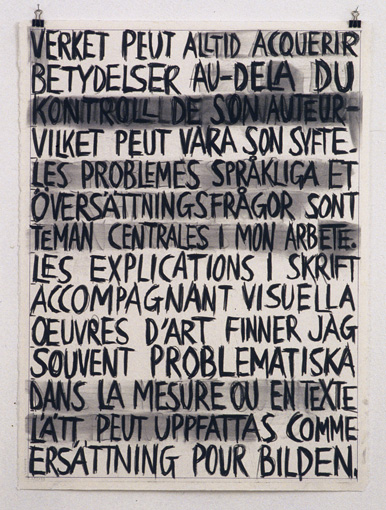 VERKET PEUT ALLTID ACQUERIR
BETYDELSER AU-DELA DU
KONTROLL DE SON AUTEUR-
VILKET PEUT VARA SON SYFTE.
LES PROBLEMES SPRÅKLIGA ET
ÖVERSÄTTNINGSFRÅGOR SONT
TEMAN CENTRALES I MON ARBETE.
LES EXPLICATIONS I SKRIFT
ACCOMPAGNANT VISUELLA
ŒUVRES D'ART FINNER JAG
SOUVENT PROBLEMATISKA
DANS LA MESURE OU EN TEXTE
LÄTT PEUT UPPFATTAS COMME
ERSÄTTNING POUR BILDEN.